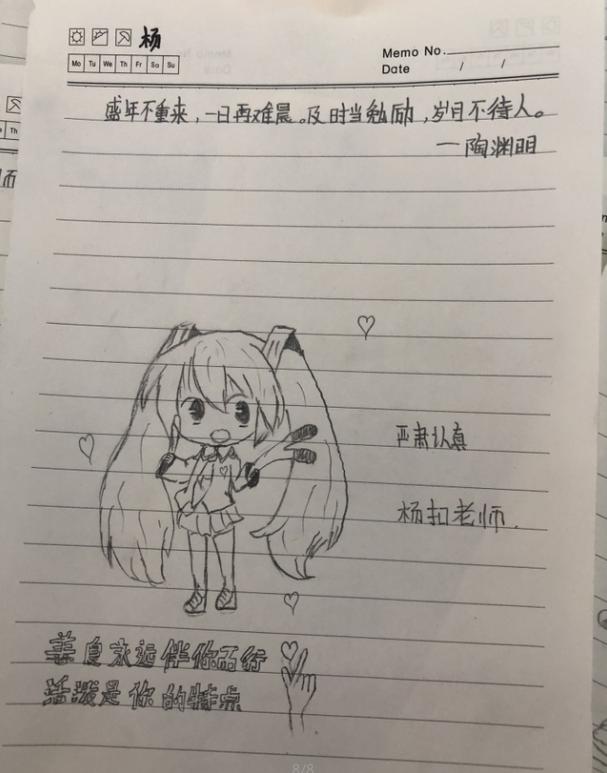 杨
Mo Tu We Th Fr Sa Su
Memo No.
Date / /
盛年不重来，一日再难晨。及时当勉励，岁月不待人。
一陶渊明
严肃认真
杨扣老师.
美良永远伴你而行
活泼是你的特点
8/8